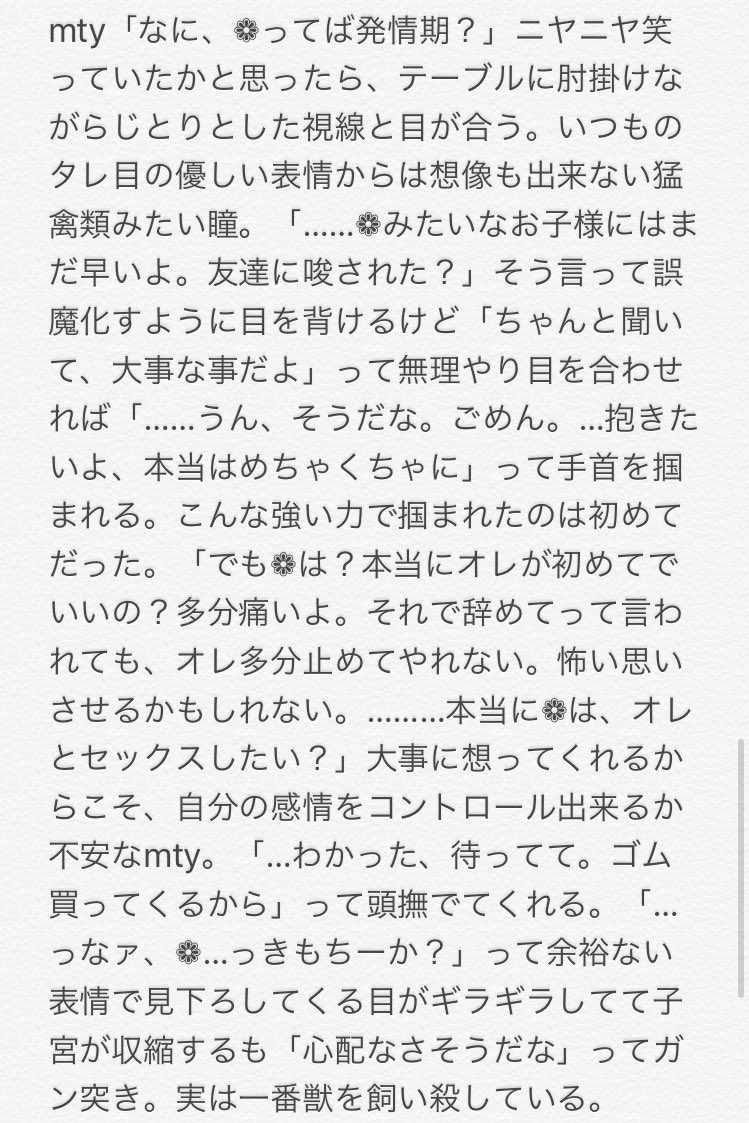 mty「なに、❁ってば発情期？」ニヤニヤ笑
っていたかと思ったら、テーブルに肘掛けな
がらじとりとした視線と目が合う。いつもの
タレ目の優しい表情からは想像も出来ない猛
禽類みたい瞳。「……❁みたいなお子様にはま
だ早いよ。友達に唆された？」そう言って誤
魔化すように目を背けるけど「ちゃんと聞い
て、大事な事だよ」って無理やり目を合わせ
れば「……うん、そうだな。ごめん。…抱きた
いよ、本当はめちゃくちゃに」って手首を掴
まれる。こんな強い力で掴まれたのは初めて
だった。「でも❁は？本当にオレが初めてで
いいの？多分痛いよ。それで辞めてって言わ
れても、オレ多分止めてやれない。怖い思い
させるかもしれない。………本当に❁は、オレ
とセックスしたい？」大事に想ってくれるか
らこそ、自分の感情をコントロール出来るか
不安なmty。「…わかった、待ってて。ゴム
買ってくるから」って頭撫でてくれる。「…
っなァ、❁…っきもちーか？」って余裕ない
表情で見下ろしてくる目がギラギラしてて子
宮が収縮するも「心配なさそうだな」ってガ
ン突き。実は一番獣を飼い殺している。